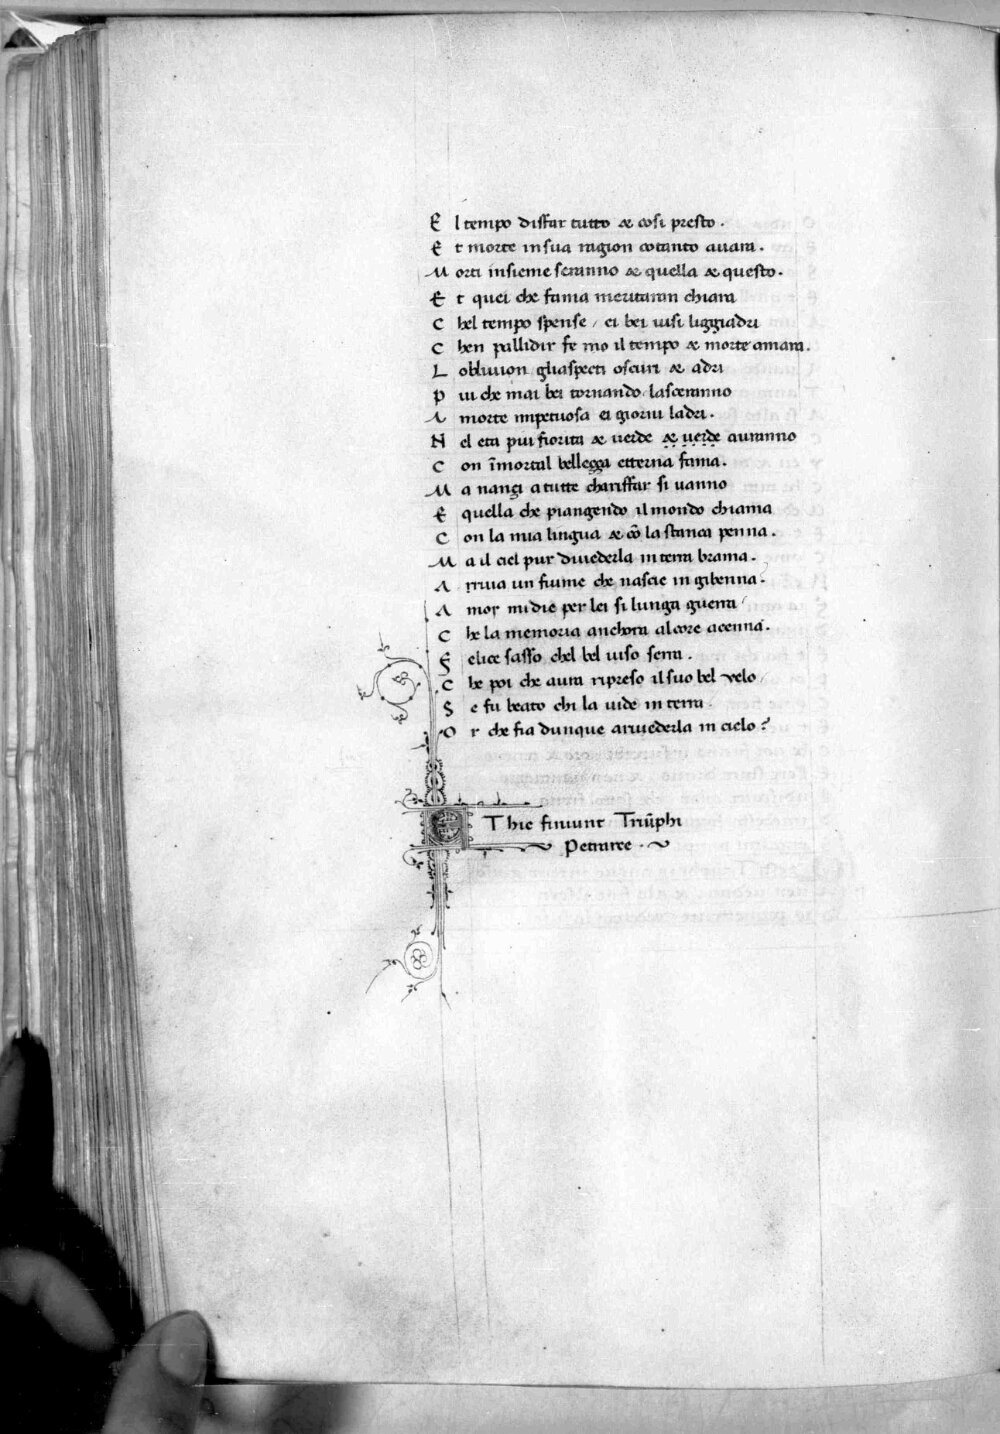 E l tempo disfar tutto & cosi presto .
E t morte in sua ragion cotanto auara .
M orti insieme seranno & quella & questo .
E t quei che fama meritaran chiara
C hel tempo spense / ei bei uisi liggiadri
C hen pallidir fe mo il tempo & morte amara .
L obliuion gliaspecti oscuri & adri
P iu che mai bei tornando lasceranno
A morte impetuosa ei giorni ladri .
N el eta piu fiorita & uerde & uerde auranno
C on īmortal bellegga etterna fama .
M a nangi a tutte chariffar si uanno
E quella che piangendo il mondo chiama
C on la mia lingua & cō la stanca penna .
M a il ciel pur diuederla in terra brama .
A rriua un fiume che nascie in gibenna .
A mor mi die per lei si lunga guerra
C he la memoria anchora al core acenna .
F elice sasso chel bel uiso serra .
C he poi che aura ripreso il suo bel velo
S e fu beato chi la uide in terra
O r che fia dunque ariuederla in cielo ?
E T hic finiunt Triūphi
Petrarce .